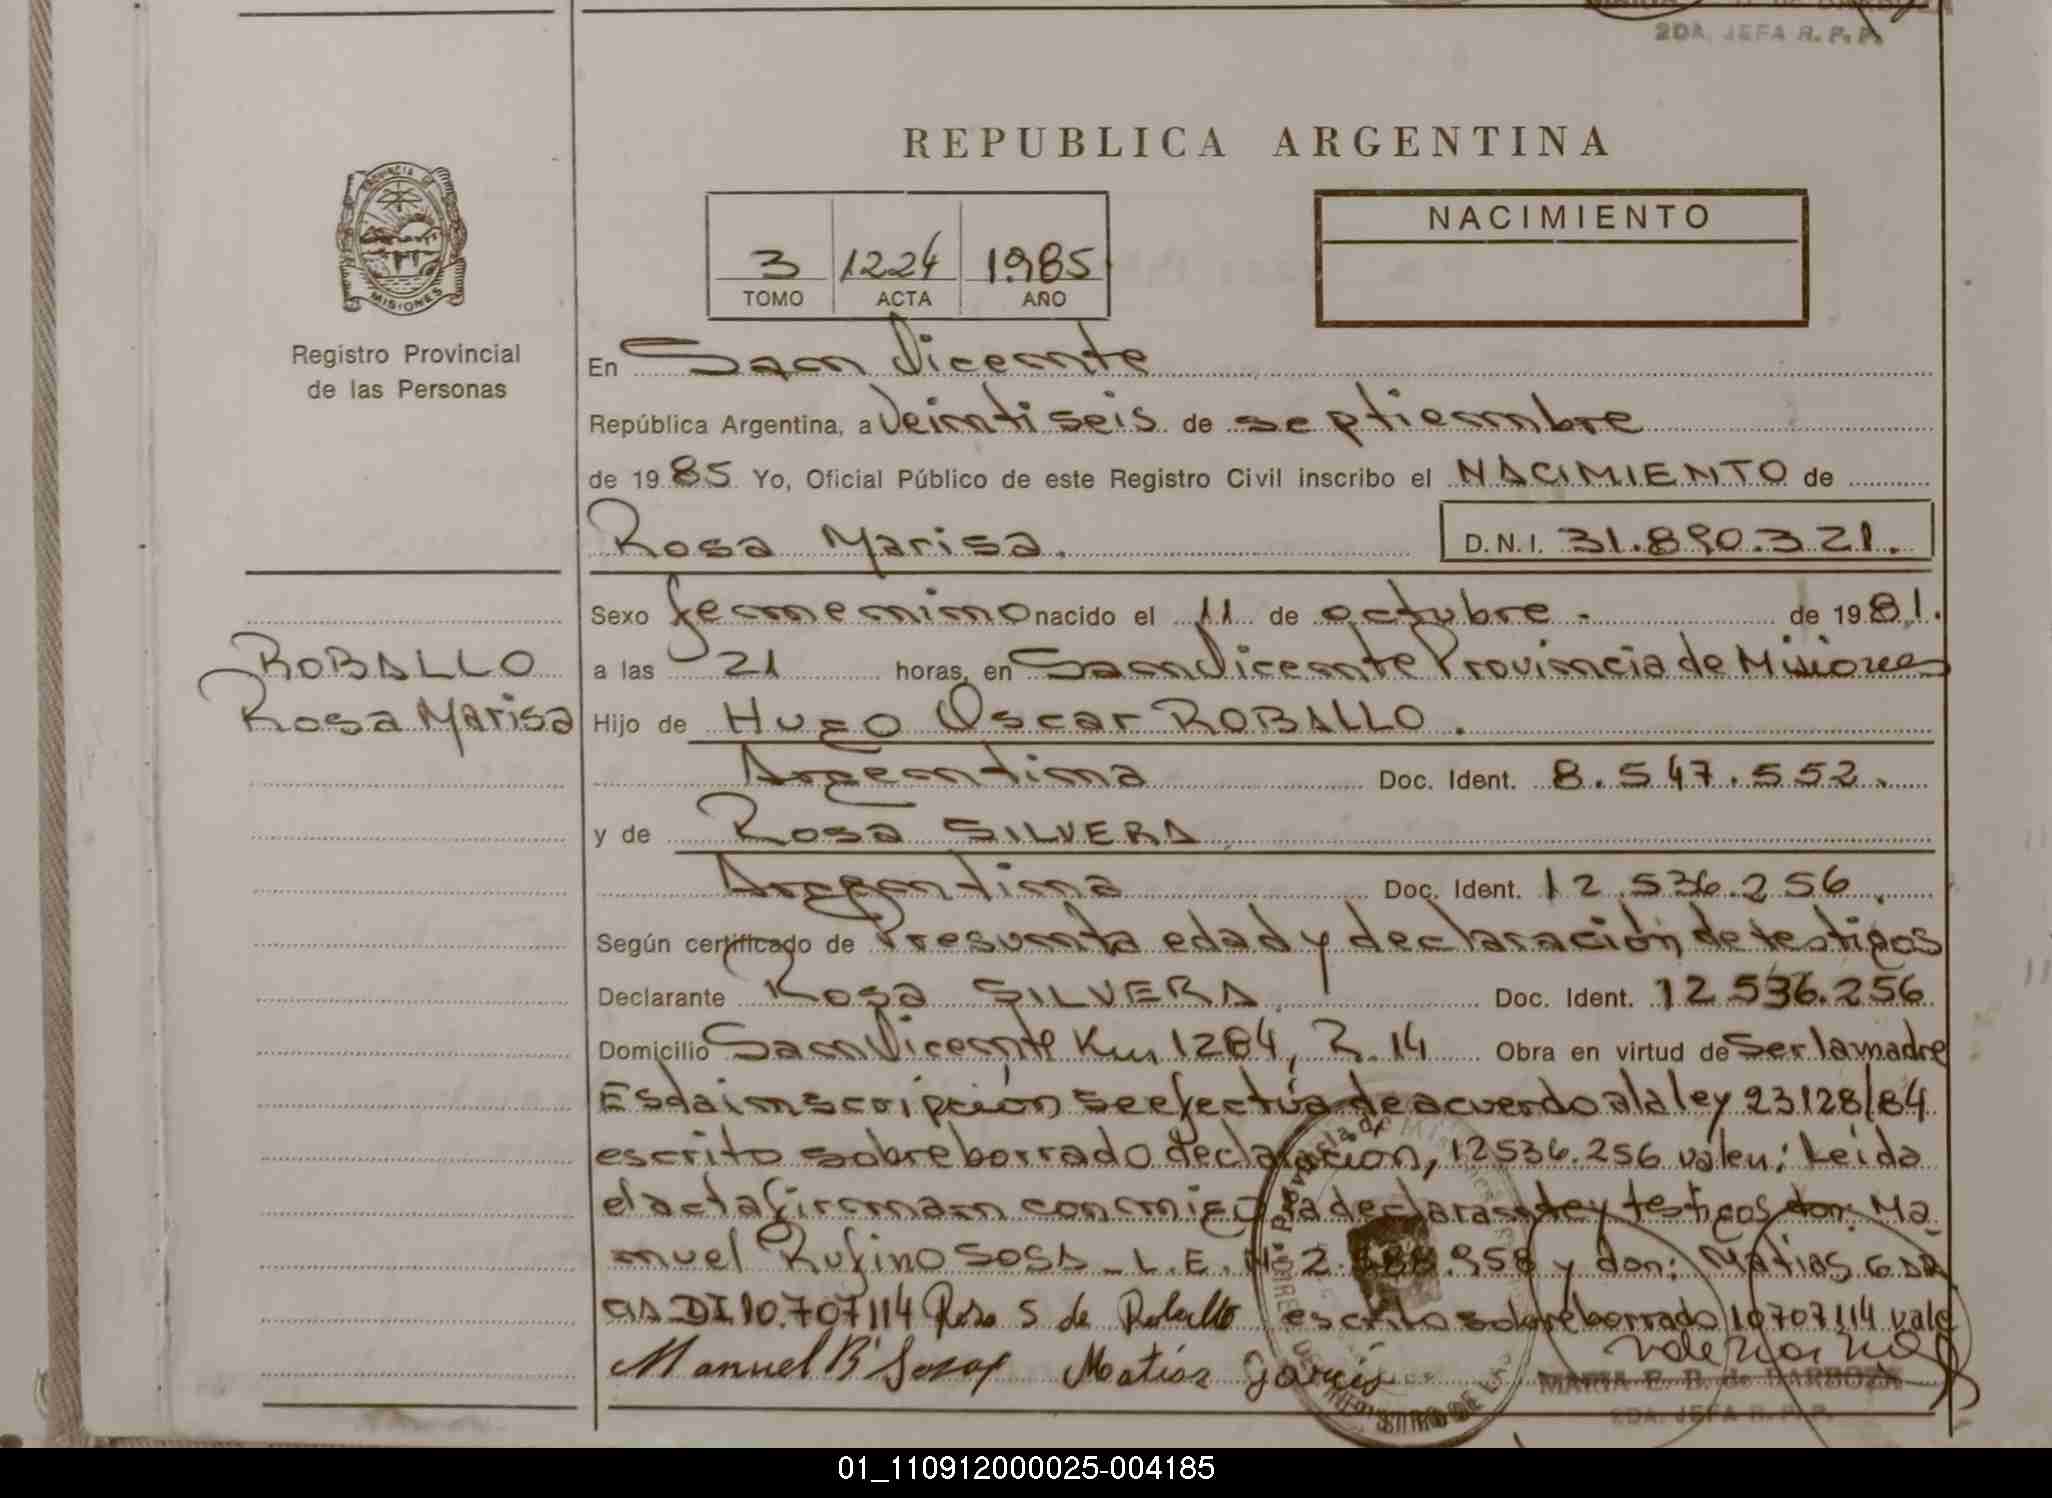 2DA. JEFA R. P. P.
REPUBLICA ARGENTINA
PROVINCIA DE MISIONES
Registro Provincial
de las Personas
3 1224 1985
TOMO ACTA AÑO
NACIMIENTO
En San Vicente
República Argentina, a Veintiseis de septiembre
de 1985 Yo, Oficial Público de este Registro Civil inscribo el NACIMIENTO de
Rosa Marisa. D.N.I. 31.890.321.
Sexo femenino nacido el 11 de octubre - de 1981.
ROBALLO
Rosa Marisa
a las 21 horas, en San Vicente Provincia de Misiones
Hijo de Hugo Oscar ROBALLO.
Argentina Doc. Ident. 8.547.552.
y de Rosa SILVERA
Argentina Doc. Ident. 12.536.256.
Según certificado de Presunta edad y declaración de testigos
Declarante Rosa SILVERA Doc. Ident. 12.536.256
Domicilio San Vicente Km 1284, R. 14 Obra en virtud de Ser la madre
Esda inscripción se efectúa de acuerdo a la ley 23128/84
escrito sobre borrado declaración, 12536.256 valen; Leida
el acta firman conmigo la declarante y testigos don: Ma
nuel Rufino SOSA - L.E. Nº 2. .958 y don: Matias GAR
CIA DI 10.707114 Rosa S de Roballo escrito sobre borrado 10707114 vale
Manuel Matias Garcia
MARIA E. B. de BARBOZA
2DA. JEFA R. P. P.
01_110912000025-004185